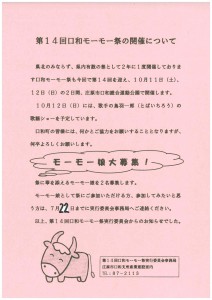 第１４回口和モーモー祭の開催について
県北のみならず、県内有数の祭として２年に１度開催しておりま
す口和モーモー祭も今回で第１４回を迎え、１０月１１日（土）、
１２日（日）の２日間、庄原市口和総合運動公園で開催します。
１０月１２日（日）には、歌手の鳥羽一郎（とばいちろう）の
歌謡ショーを予定しています。
口和町の皆様には、何かとご協力をお願いすることとなりますが、
何卒よろしくお願いします。
モーモー娘大募集！
祭に華を添えるモーモー娘を２名募集します。
モーモー娘として祭にご参加いただける方、参加してみたいと思
う方は、７月22日までに実行委員会事務局へご連絡ください。
以上、第１４回モーモー祭実行委員会からのお知らせでした。
第１４回口和モーモー祭実行委員会事務局
TEL：８７－２１１３